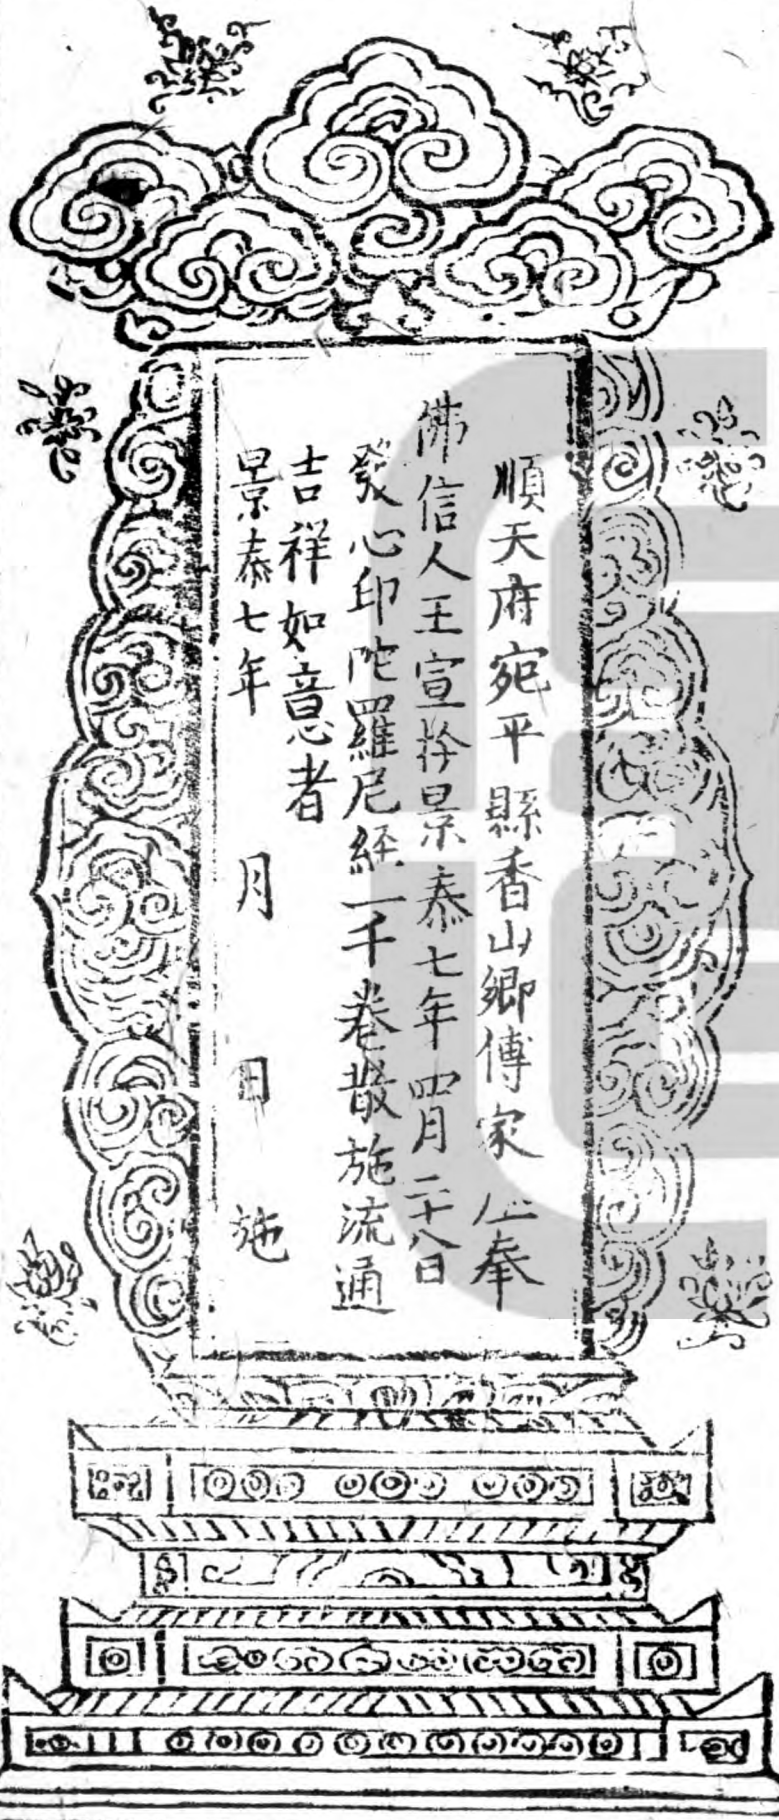 順天府宛平縣香山鄉傅家庄奉
佛信人王宣於景泰七年四月二十八日
發心印陀羅尼經一千卷散施流通
吉祥如意者
景泰七年　月　日　施